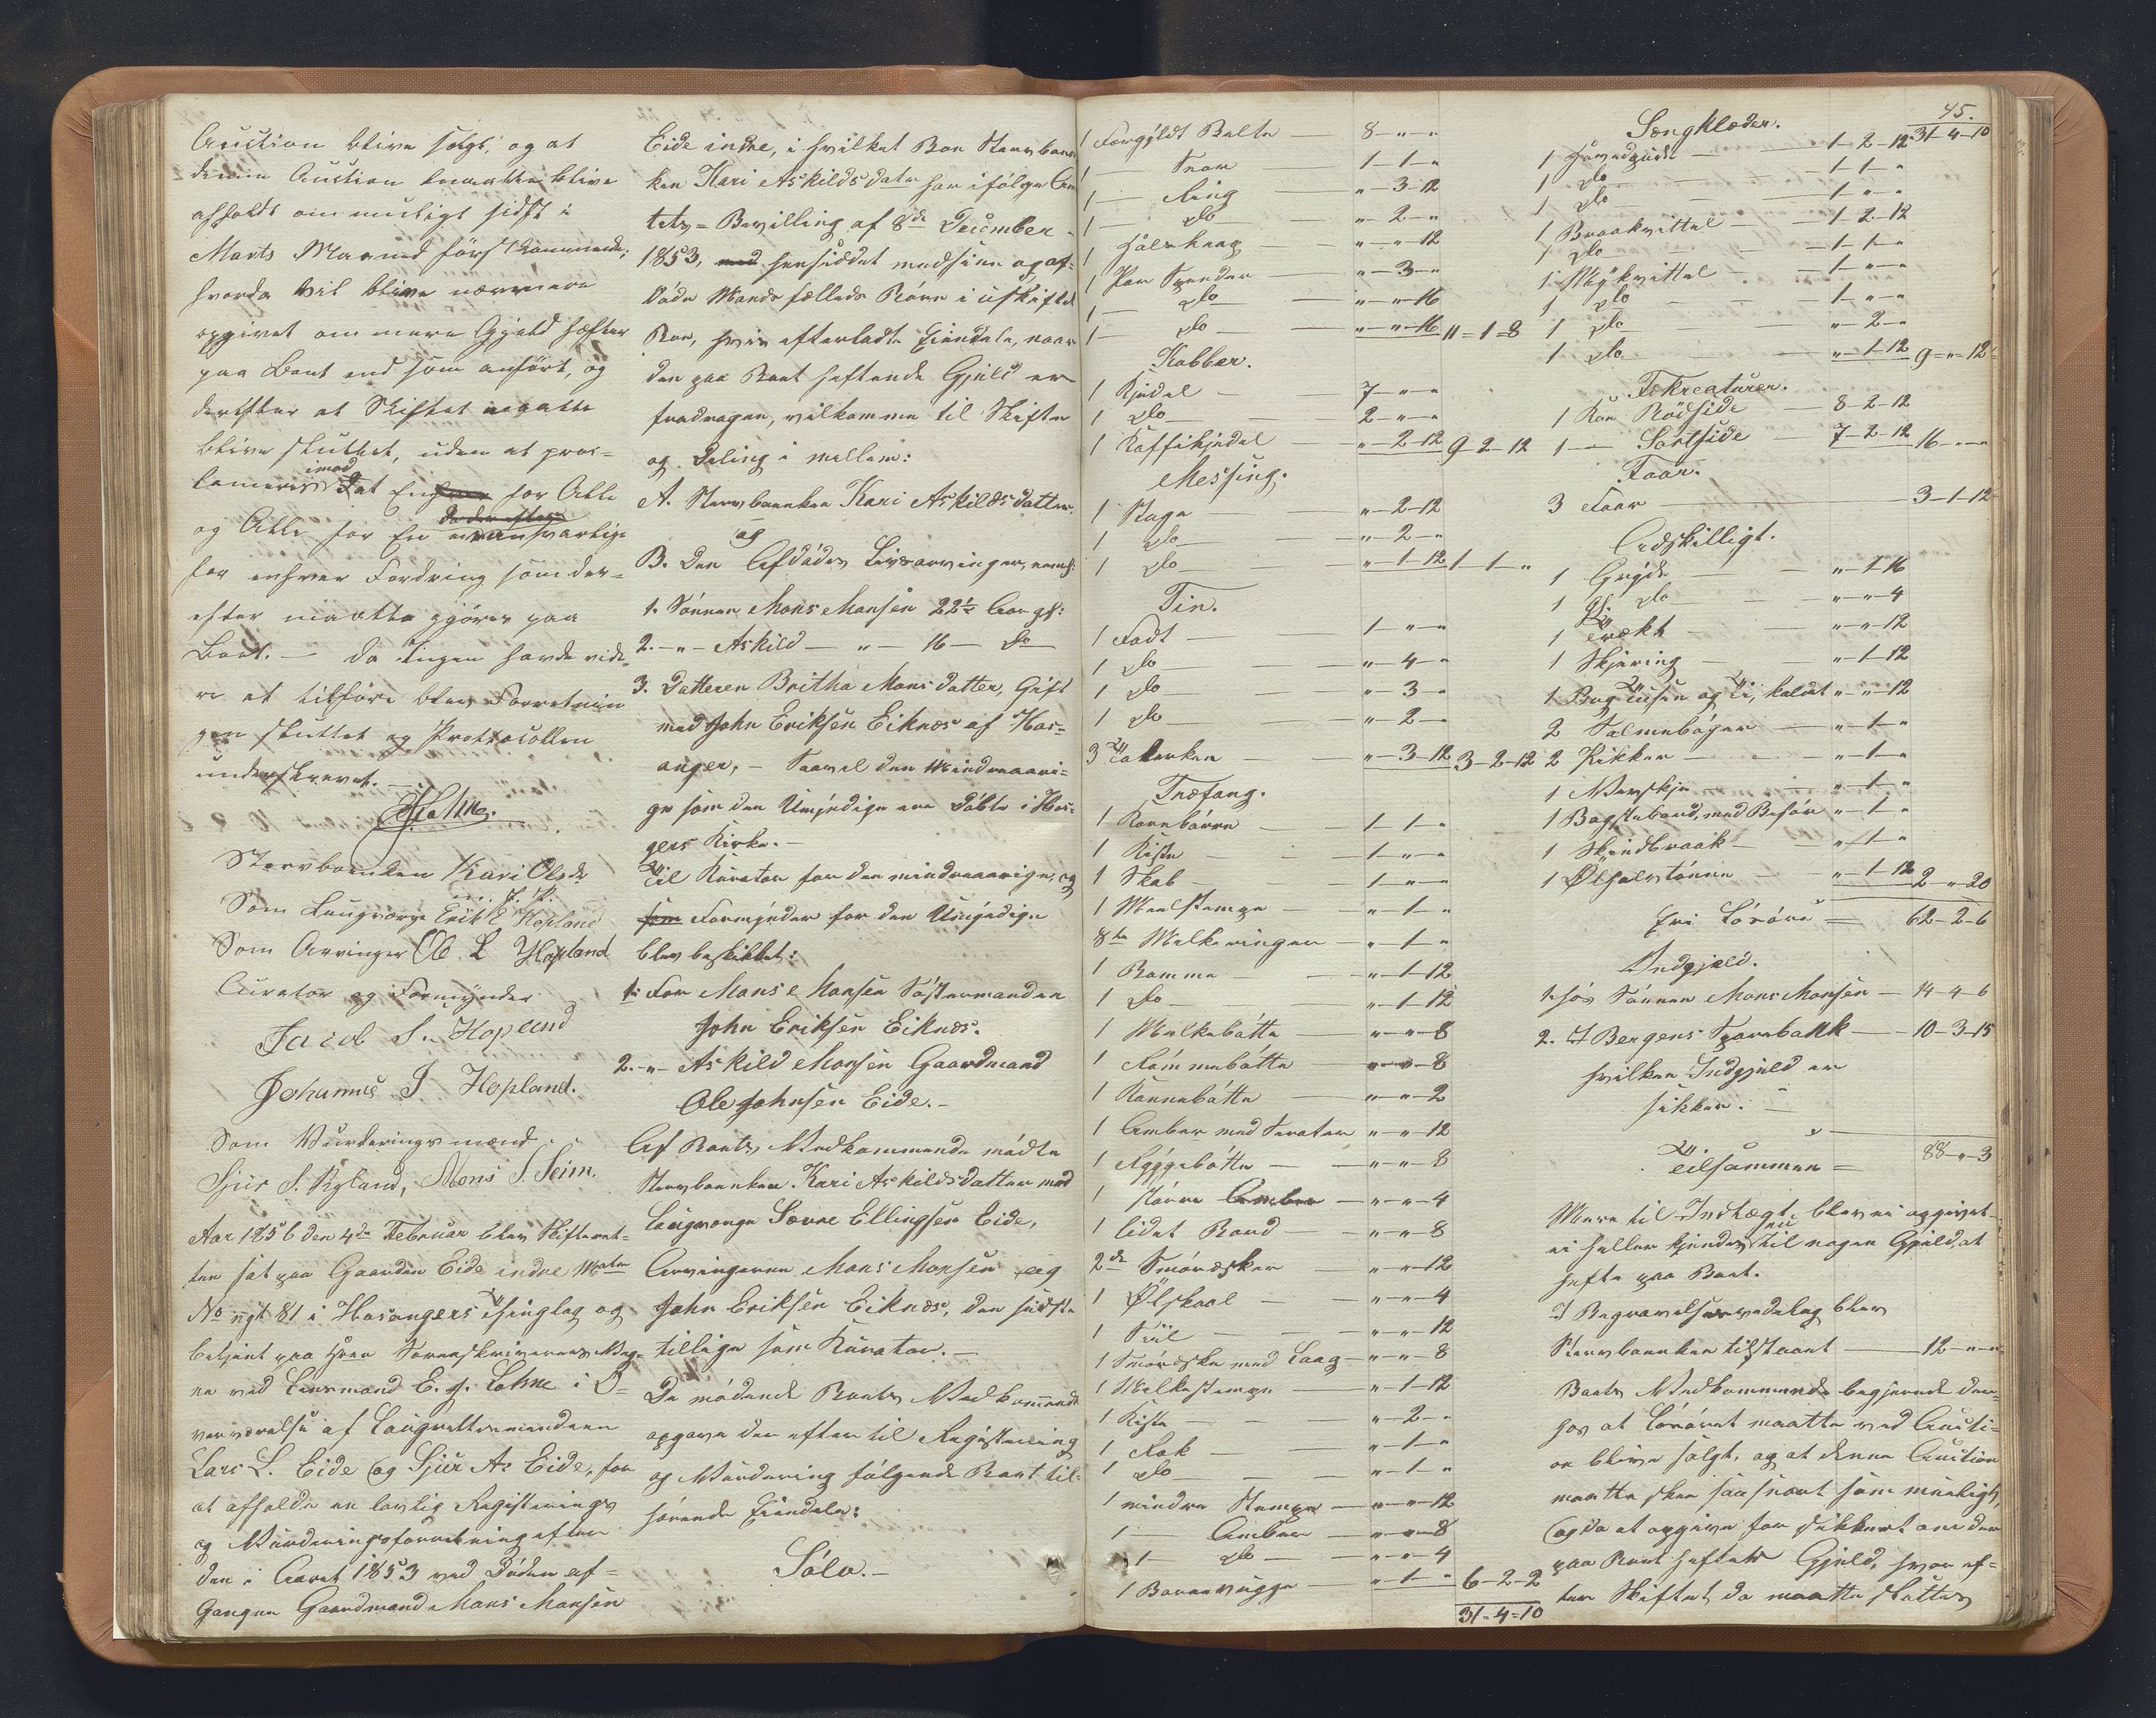 Auction blive solgt, og at
denne Auction maatte blive
afholdt om muligt sidst i
Marts Maaned førstkommende,
hvorda vil blive nærmere
opgivet om mere Gjæld hefter
paa Boet end som anført, og
derefter at Skiftet maatte
blive sluttet, uden at proc-
lameres imod at En for Alle
og Alle for En ere ansvarlige
for enhver Fordring som der-
efter maatte gjøres paa
Boet. — Da Ingen havde vide-
re at tilføre blev Forretnin
gen sluttet og Protocollen
underskrevet. —
Lohne.
Stervboenken Kari Olsdr
m. f. P.
Som Laugværge Erik E Hopland
Som Arvinger Ole L Hopland
Curator og Formynder
Jacob S. Hopland
Johannes J Hopland.
Som Vurderingsmænd
Sjur S. Ryland, Mons S. Seim.
Aar 1856 den 4de Februar blev Skifteret-
ten sat paa Gaarden Eide indre Matr
No nyt 81 i Hosangers Thinglag og
betjent paa Herr Sorenskriverens Veg-
ne ved Lensmand E. J. Lohne i O-
verværelse af Laugrettesmændene
Lars L. Eide og Sjur As Eide, for
at afholde en lovlig Registerings
og Vurderingsforretning efter
den i Aaret 1853 ved Døden af-
gangne Gaardmand Mons Monsen
Eide indre, i hvilket Boe Stervboen
ken Kari Askildsdatr har ifølge Am
tets-Bevilling af 8de December
1853, hensiddet med sin og af-
døde Mands fælleds Børn i uskiftet
Boe, hvis efterladte Eiendele, naar
den paa Boet heftende Gjeld er
fradragen, vilkomme til Skifte
og Deling i mellem:
A. Stervboenken Kari Askildsdatter,
og
B. Den Afdødes Livsarvinger, neml:
1. Sønnen Mons Monsen 22½ Aar gl:
2. -„- Askild — „ — 16 — do
3. Datteren Britha Monsdatter, Gift
med John Eriksen Eiknæs af Hos-
anger, — Saavel den Mindreaari-
ge som den Umyndige ere døbte i Hos-
gers Kirke. —
Til Kurator for den mindreaarige, og
Formynder for den Umyndige
blev beskikket:
1. For Mons Monsen Søstermanden
John Eriksen Eiknæs.
2. -„- Askild Monsen Gaardmand
Ole Johnsen Eide. —
Af Boets Vedkommende mødte
Stervboenken Kari Askildsdatter med
Laugværge Sevre Ellingsen Eide,
Arvingerne Mons Monsen og
John Eriksen Eiknæs, den sidste
tillige som Kurator. —
De mødende Boets Vedkommende
opgave derefter til Registering
og Vurdering følgende Boet til-
hørende Eiendele:
Sølv. —
1 Forgyldt Belte — 8 - „ - „
1 — 1 - 1 - „
1 — Ring — „ - 3 - 12
1 — do — „ - 2 - „
1 Halsknap — „ - „ - 12
1 Par Spender — „ - 3 - „
1 — do — „ - „ - 16
1 — do — „ - „ - 16 11 = 1 = 8
Kobber.
1 Kjedel — 7 - „ - „
1 do — 2 - „ - „
1 Kaffekjedel — „ - 2 - 12 9 - 2 - 12
Messing.
1 Stage — „ - 2 - 12
1 do — „ - 2 - „
1 do — „ - 1 - 12 1 - 1 - „
Tin.
1 Fadt — 1 - „ - „
1 do — „ - 4 - „
1 do — „ - 3 - „
1 do — „ - 2 - „
3 Talerken — „ - 3 - 12 3 - 2 - 12
Træfang.
1 Kornbørre — 1 - 1 - „
1 Kiste — 1 - „ - „
1 Skab — 1 - „ - „
1 Meelstampe — „ - 1 - „
8te Melkeringer — „ - 1 - „
1 Komme — „ - 1 - 12
1 do — „ - 1 - 12
1 Melkebøtte — „ - „ - 8
1 Rømmebøtte — „ - „ - 8
1 Kannebøtte — „ - „ - 2
1 Amber med — „ - „ - 12
1 Ryggebøtte — „ - „ - 8
1 større — „ - „ - 4
1 lidet Bord — „ - „ - 8
2de Smøræsker — „ - „ - 12
1 Ølskaal — „ - „ - 4
1 — „ - „ - 12
1 Smøræske med Laag — „ - „ - 8
1 Melkestampe — „ - 1 - 12
1 Kiste — „ - 2 - „
1 Rok — „ - 1 - „
1 do — „ - 1 - „
1 mindre Stampe — „ - „ - 12
1 — Amber — „ - „ - 8
1 — do — „ - „ - 4
1 Barnevugge — „ - 1 - „ 6 - 2 - 2
31 - 4 = 10
45.
Sengklæder.
31 - 4 - 10
1 Hovedpude — 1 - 2 - 12
1 do — 1 - 1 - „
1 do — 1 - „ - „
1 Braakvittel — 1 - 2 - 12
1 do — 1 - 1 - „
1 Mykvittel — 1 - „ - „
1 do — 1 - „ - „
1 do — „ - 2 - „
1 do — „ - 1 - 12 9 = „ = 12
Fækreaturer.
1 Koe Rødside — 8 - 2 - 12
1 — Sortside — 7 - 2 - 12 16 - „ - „
Faar.
3 Faar — 3 - 1 - 12
Adskilligt.
1 Gryde — „ - 1 - 16
1 gl. do — „ - „ - 4
1 — „ - „ - 12
1 Skjæring — „ - 1 - 12
1 Bag og kaldet „ - „ - 12
2 Salmebøger — „ - 1 - „
2 Kikker — „ - 1 - „
1 — „ - 1 - „
1 med „ - 1 - „
1 Skindbraak — „ - 1 - „
1 Ølhalvtønne — „ - 1 - 12 2 - „ - 20
Er Løsøre = 62 - 2 - 6
Indgjæld.
1. hos Sønnen Mons Monsen — 14 - 4 - 6
2. I Bergens Sparebank — 10 - 3 - 15
hvilken Indgjæld er
sikker. —
Tilsammen = 88 - „ - 3
Mere til Indtægt blev ei opgivet
ei heller kjendes til nogen Gjeld, at
hefte paa Boet.
I Begravelsesvederlag blev
Stervboenken tilstaaet — 12 - „ - „
Boets Vedkommende begjerede der-
hos at Løsøret maatte ved Aucti-
on blive solgt, og at denne Auction
maatte skee saasnart som mueligt,
og da at opgive for Sikkert om der
paa Boet heftede Gjeld, hvor ef-
ter Skiftet da maatte sluttes